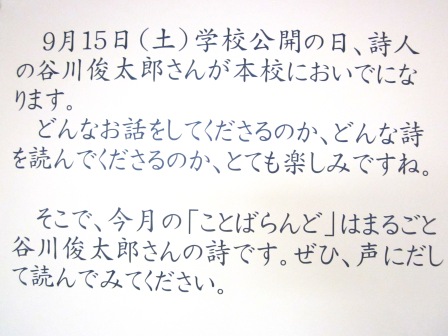 ９月15日（土）学校公開の日、詩人
の谷川俊太郎さんが本校においでにな
ります。
どんなお話をしてくださるのか、どんな詩
を読んでくださるのか、とても楽しみですね。
そこで、今月の「ことばらんど」はまるごと
谷川俊太郎さんの詩です。ぜひ、声にだし
て読んでみてください。